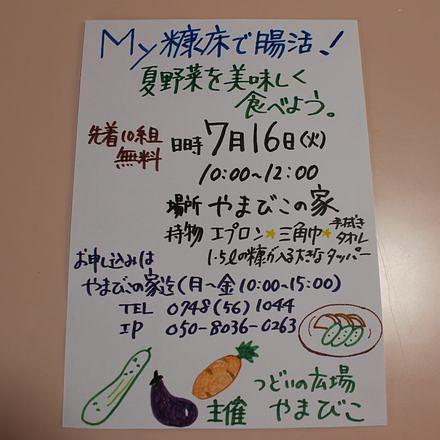 My糠床で腸活！
夏野菜を美味しく
食べよう。
先着10組
無料
日時 7月16日(火)
10:00~12:00
場所 やまびこの家
持物 エプロン★三角巾★手拭きタオル
1.5ℓの糠が入る大きなタッパー
お申し込みは
やまびこの家迄(月~金10:00~15:00)
TEL 0748(56)1044
IP 050-8036-0263
主催 つどいの広場
やまびこ